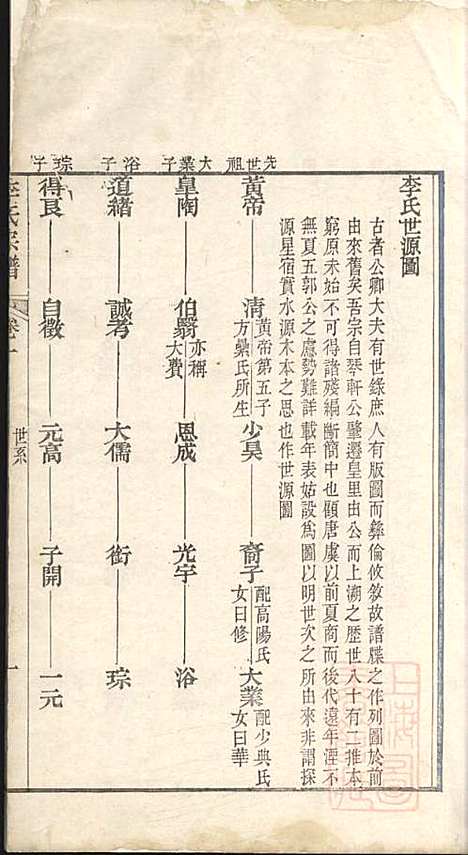 李氏世源圖
古者公卿大夫有世祿庶人有版圖而彜倫攸敘故譜牒之作列圖於前
由來舊矣吾宗自琴軒公肇遷皇里由公而上溯之歷世八十有二推本
窮原未始不可得諸殘編斷簡中也顧唐虞以前夏商而後代遠年湮不
無夏五郭公之慮勢難詳載年表姑設為圖以明世次之所由來非謂探
源星宿實水源木本之思也作世源圖
先世祖
黃帝 清 黃帝第五子方纍氏所生 少昊 裔子 配高陽氏女曰修 大業 配少典氏女曰華
大業子
皇陶 伯翳 亦稱大費 恩成 光宇 浴
浴子
道緒 誠考 大儒 銜 琮
琮子
得艮 自徵 元高 子開 一元
李氏宗譜 卷一 世系 一